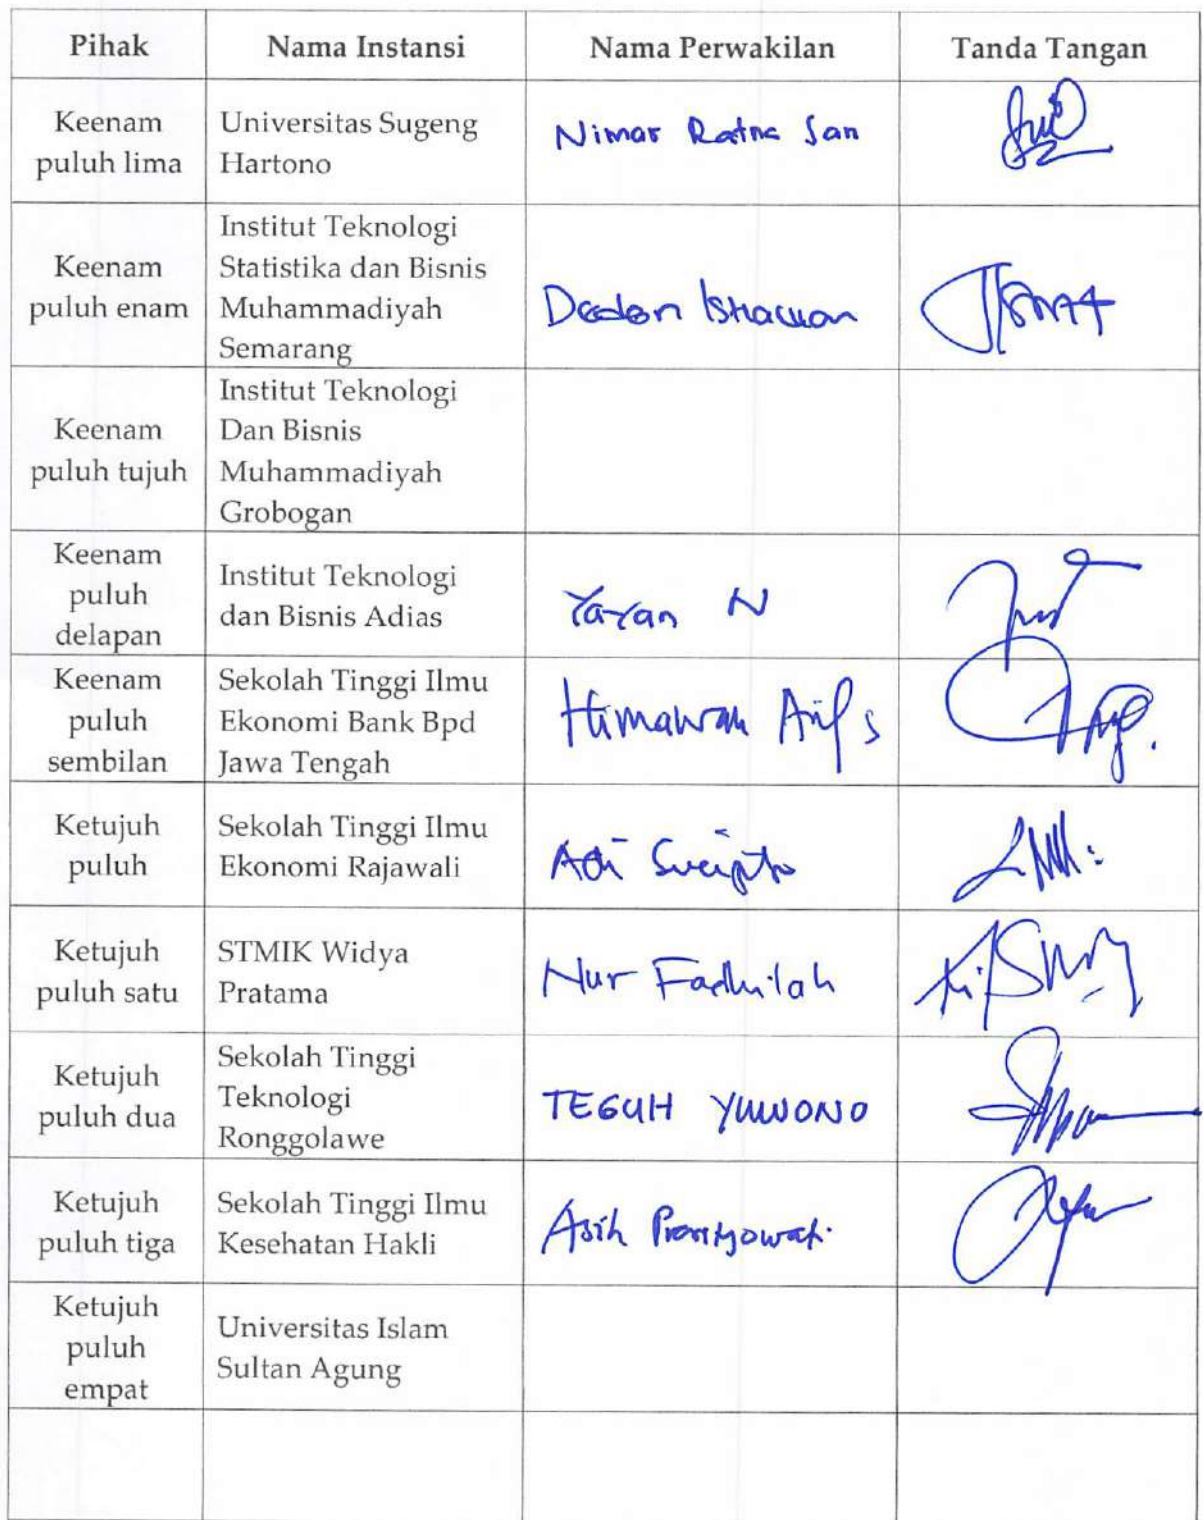 Pihak Nama Instansi Nama Perwakilan Tanda Tangan
Keenam
puluh lima
Universitas Sugeng
Hartono
Nimas Ratna Sari
Keenam
puluh enam
Institut Teknologi
Statistika dan Bisnis
Muhammadiyah
Semarang
Deden Istiawan
Keenam
puluh tujuh
Institut Teknologi
Dan Bisnis
Muhammadiyah
Grobogan
Keenam
puluh
delapan
Institut Teknologi
dan Bisnis Adias
Yayan N
Keenam
puluh
sembilan
Sekolah Tinggi Ilmu
Ekonomi Bank Bpd
Jawa Tengah
Himawan Arif S
Ketujuh
puluh
Sekolah Tinggi Ilmu
Ekonomi Rajawali
Adi Sucipto
Ketujuh
puluh satu
STMIK Widya
Pratama
Nur Fadhilah
Ketujuh
puluh dua
Sekolah Tinggi
Teknologi
Ronggolawe
TEGUH YUWONO
Ketujuh
puluh tiga
Sekolah Tinggi Ilmu
Kesehatan Hakli
Asih
Ketujuh
puluh
empat
Universitas Islam
Sultan Agung